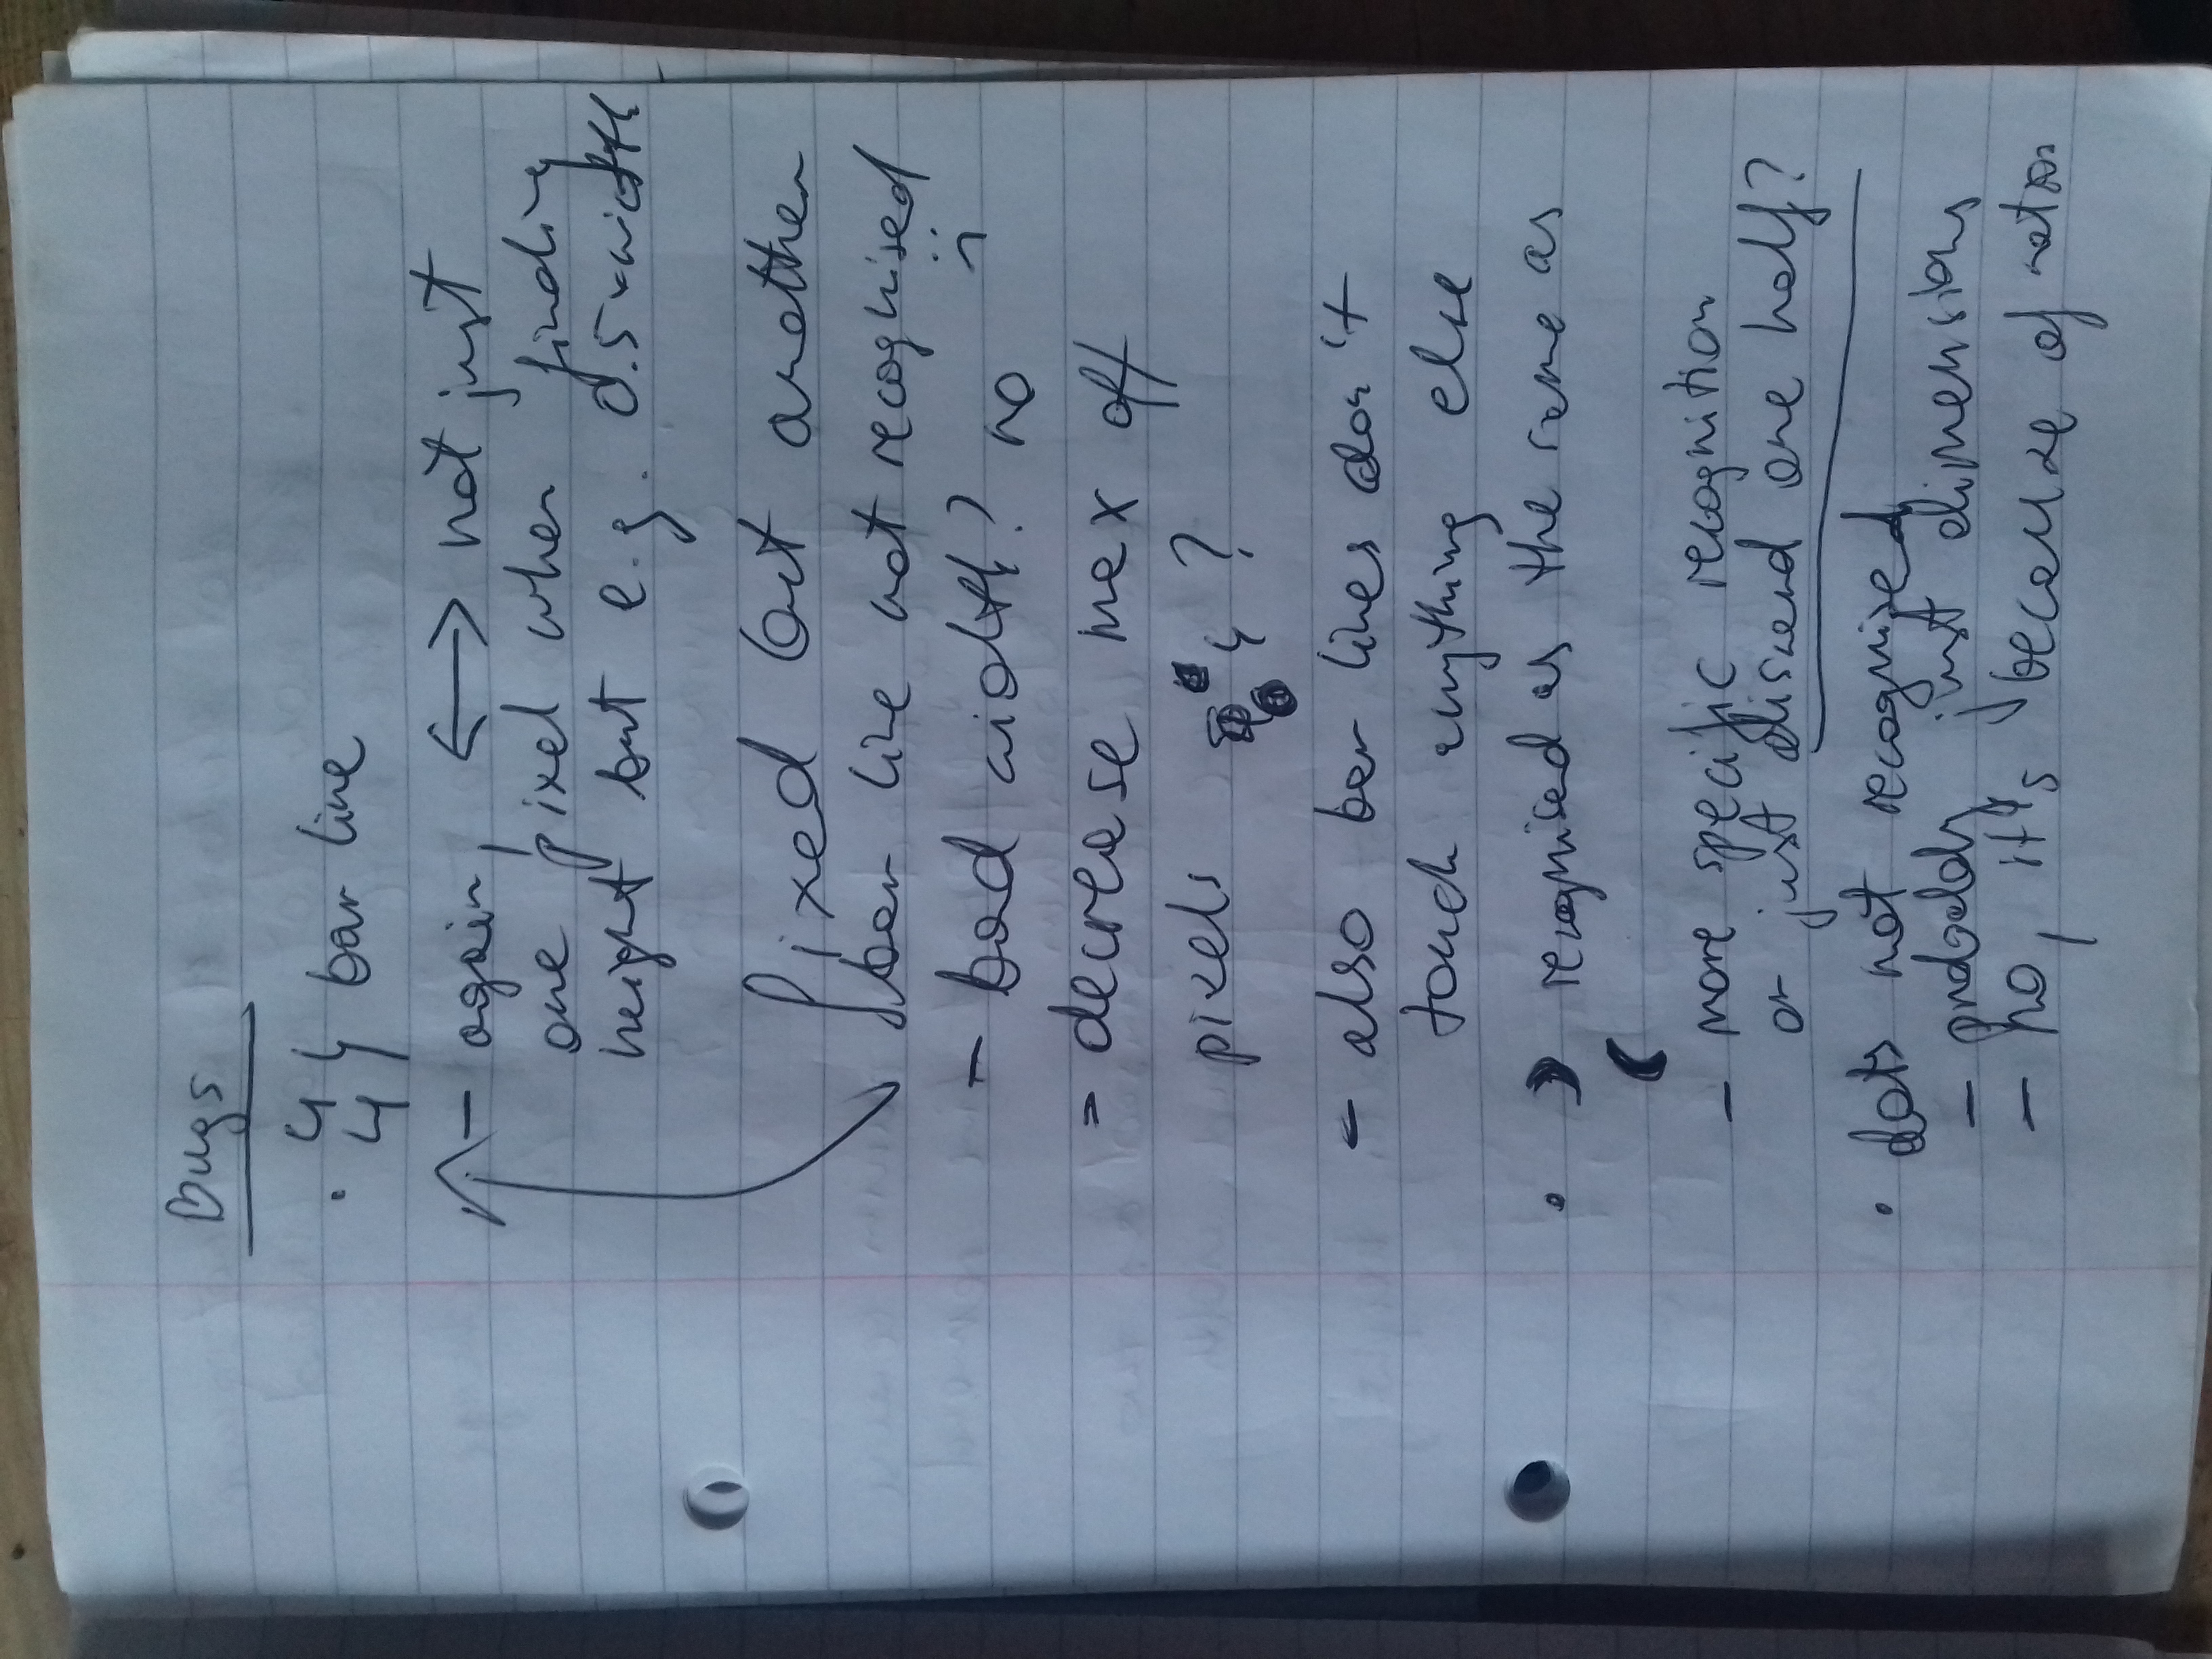 Bugs
· 4
4 bar line
- again, ⟷ not just
one pixel when finding
height but e.g. 0.5 × width
fixed but another
bar line not recognised
- bad width? no
- decrease max off
pixels ?
- also bar lines don't
touch anything else
· recognised as the same as
- more specific recognition
or just discard one half?
· dots not recognised
- probably just dimensions
- no, it's because of ratios